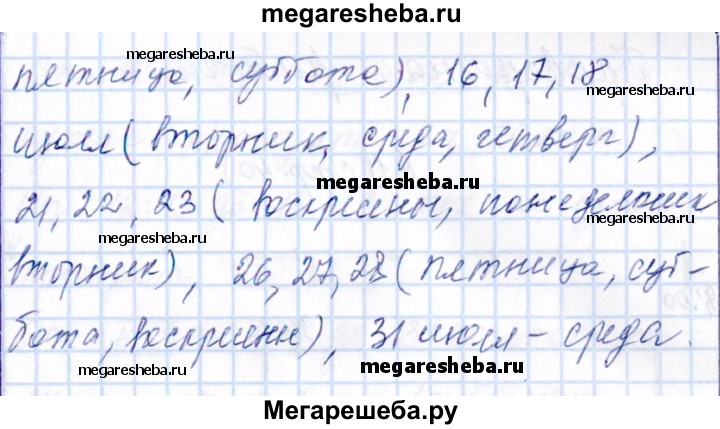 megaresheba.ru
megaresheba.ru
пятница, суббота), 16, 17, 18
megaresheba.ru
июля (вторник, среда, четверг),
megaresheba.ru
megaresheba.ru
21, 22, 23 (воскресенье, понедельник
megaresheba.ru
вторник), 26, 27, 28 (пятница, суб-
megaresheba.ru
бота, воскресенье), 31 июля - среда.
Мегарешеба.ру